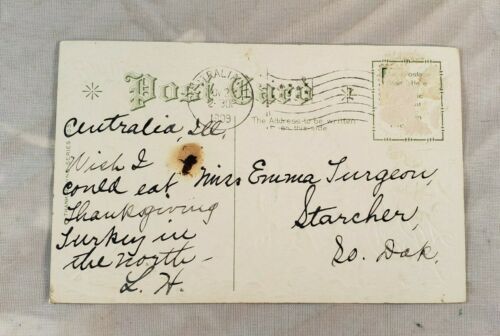 Post Card
1909
The Address to be written
on this side
Centralia, Ill.
Wish I
could eat
Thanksgiving
Turkey in
the north-
L. H.
Miss Emma Turgeon,
Starcher,
So. Dak.